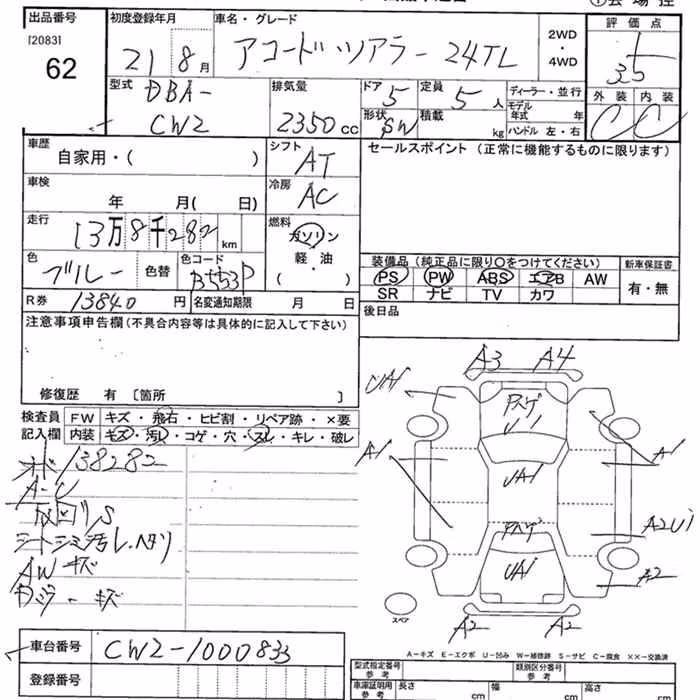 出品番号 初度登録年月 車名・グレード 評価点
[2083] 62
21 8月 アコードツアラー 24TL 2WD・4WD 3.5
型式 DBA-CW2 排気量 2350cc ドア 5 定員 5人 ディーラー・並行 外装 内装
形状 SW 積載 kg モデル年式 年 C C
ハンドル 左・右
車歴 自家用・( ) シフト AT セールスポイント(正常に機能するものに限ります)
車検 年 月( 日) 冷房 AC
走行 13万8千282km 燃料 ガソリン 軽・油 ( )
色 ブルー 色替 色コード B553P
装備品(純正品に限り○をつけてください) 新車保証書
PS PW ABS エアB AW 有・無
SR ナビ TV カワ
R券 13840円 名変通知期限 月 日 後日品
注意事項申告欄(不具合内容等は具体的に記入して下さい)
修復歴 有 [箇所 ]
検査員記入欄 FW キズ・飛石・ヒビ割・リペア跡・×要
内装 キズ・汚レ・コゲ・穴・スレ・キレ・破レ
138282
A-C
シートシミ汚レ・ヘタリ
AWキズ
A3 A4
UA1
U1
A1 UA1 A1
A2U1
UA1 A2
A2 A2
スペア
車台番号 CW2-1000833
登録番号
A-キズ E-エクボ U-凹み W-補修跡 S-サビ C-腐食 ××-交換済
型式指定番号 参考 類別区分番号 参考
車庫証明用 参考 長さ cm 幅 cm 高さ cm